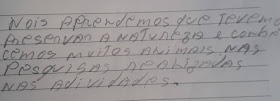 Nois Aprendemos que Tevemo
Presenvan A NATUREZA e conhe
cemos muitos Animais NAS
Pesquisas Realizadas
NAS Atividades.